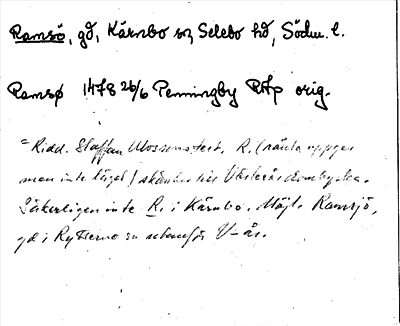 Ramsö, gd, Kärnbo sn Selebo hd, Södm. l.
Ramsø 1478 26/6 Penningby RAp orig.
= Ridd. Staffan Ulvssons test. R. (ränta uppges
man inte läget) skänkes till Västerås domkyrka.
Säkerligen inte R. i Kärnbo. Möjl. Ramsjö,
gd i Rytterne sn